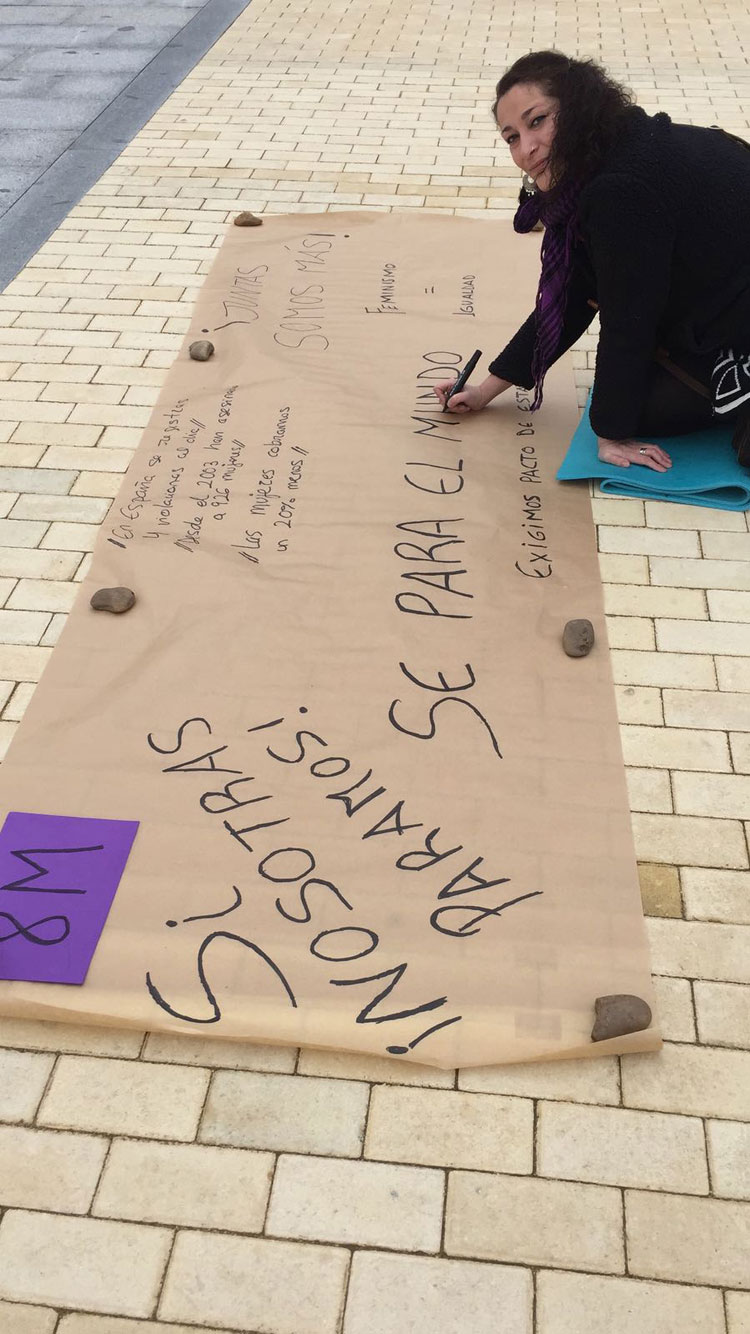 8M
Si
¡NOSOTRAS
PARAMOS!
SE PARA EL MUNDO
"En España se registran
4 violaciones al día"
"Desde el 2003 han asesinado
a 926 mujeres"
"Las mujeres cobramos
un 20% menos"
EXIGIMOS PACTO DE
¡JUNTAS
SOMOS MÁS!
FEMINISMO
=
IGUALDAD